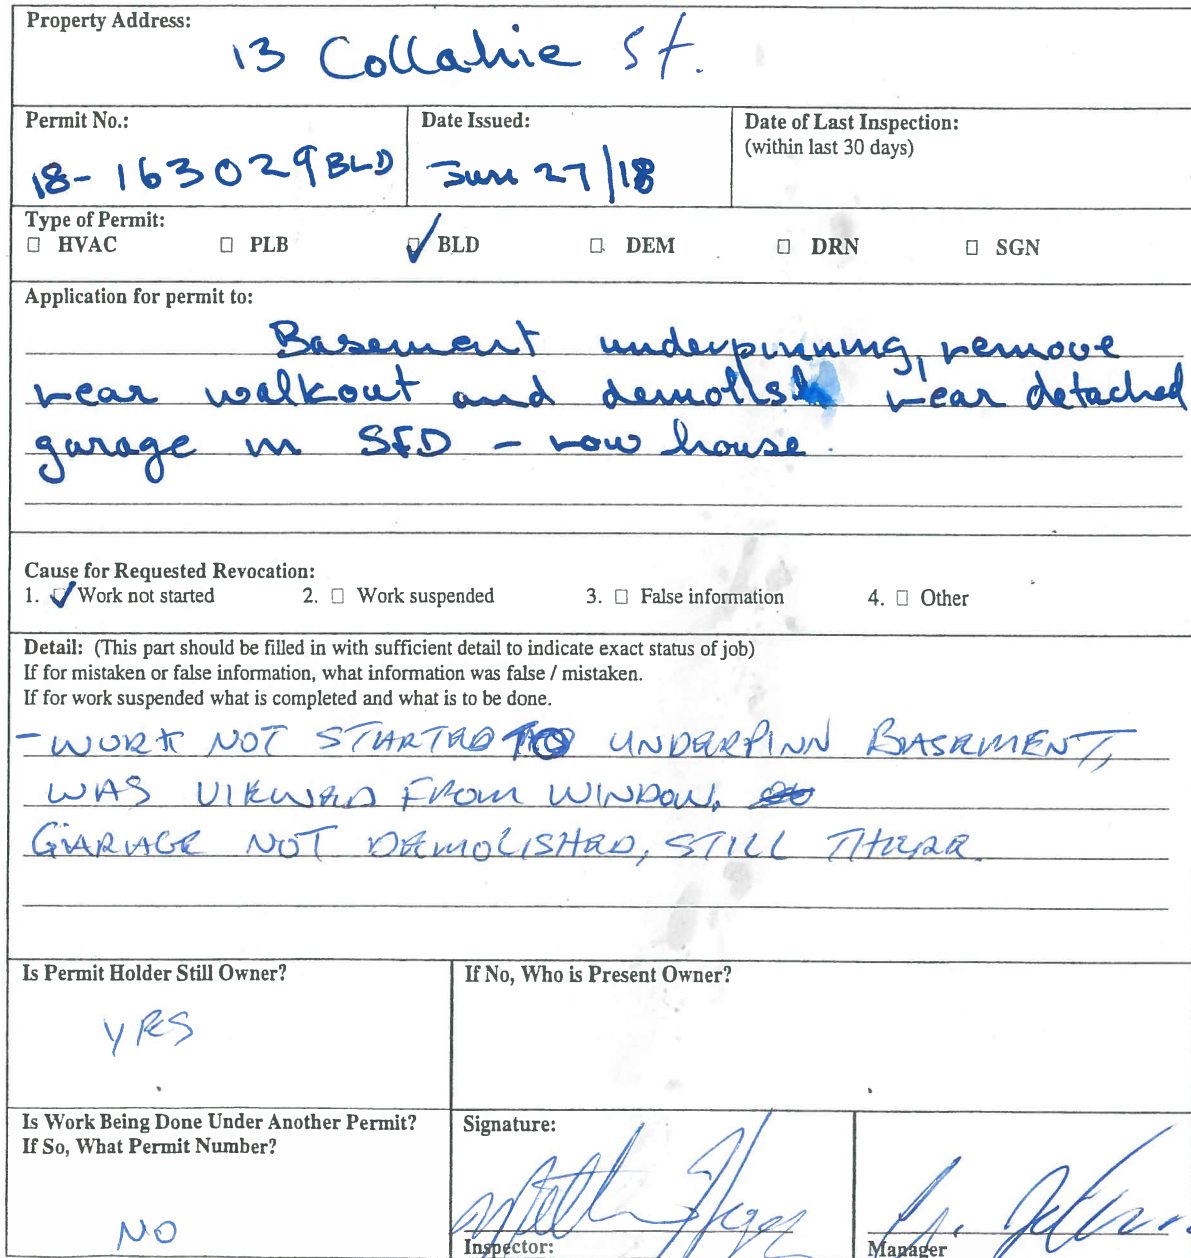 Property Address:
13 Collahie St.
Permit No.:
18-163029 BLD
Date Issued:
Jun 27/18
Date of Last Inspection:
(within last 30 days)
Type of Permit:
☐ HVAC ☐ PLB ☑ BLD ☐ DEM ☐ DRN ☐ SGN
Application for permit to:
Basement underpinning, remove
rear walkout and demolish rear detached
garage in SFD - row house.
Cause for Requested Revocation:
1. ☑ Work not started 2. ☐ Work suspended 3. ☐ False information 4. ☐ Other
Detail: (This part should be filled in with sufficient detail to indicate exact status of job)
If for mistaken or false information, what information was false / mistaken.
If for work suspended what is completed and what is to be done.
- WORK NOT STARTED TO UNDERPINN BASEMENT,
WAS VIEWED FROM WINDOW.
GARAGE NOT DEMOLISHED, STILL THERE.
Is Permit Holder Still Owner?
YES
If No, Who is Present Owner?
Is Work Being Done Under Another Permit?
If So, What Permit Number?
NO
Signature:
Inspector:
Manager